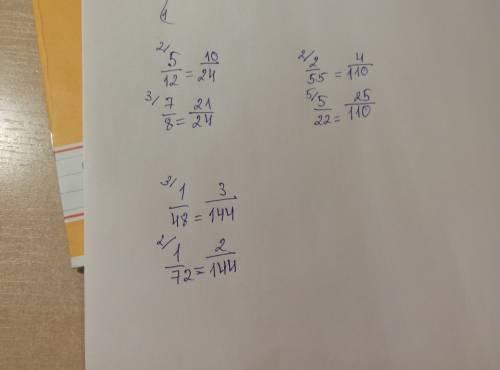 2/ 5/12 = 10/24
3/ 7/8 = 21/24
2/ 2/55 = 4/110
5/ 5/22 = 25/110
3/ 1/48 = 3/144
2/ 1/72 = 2/144